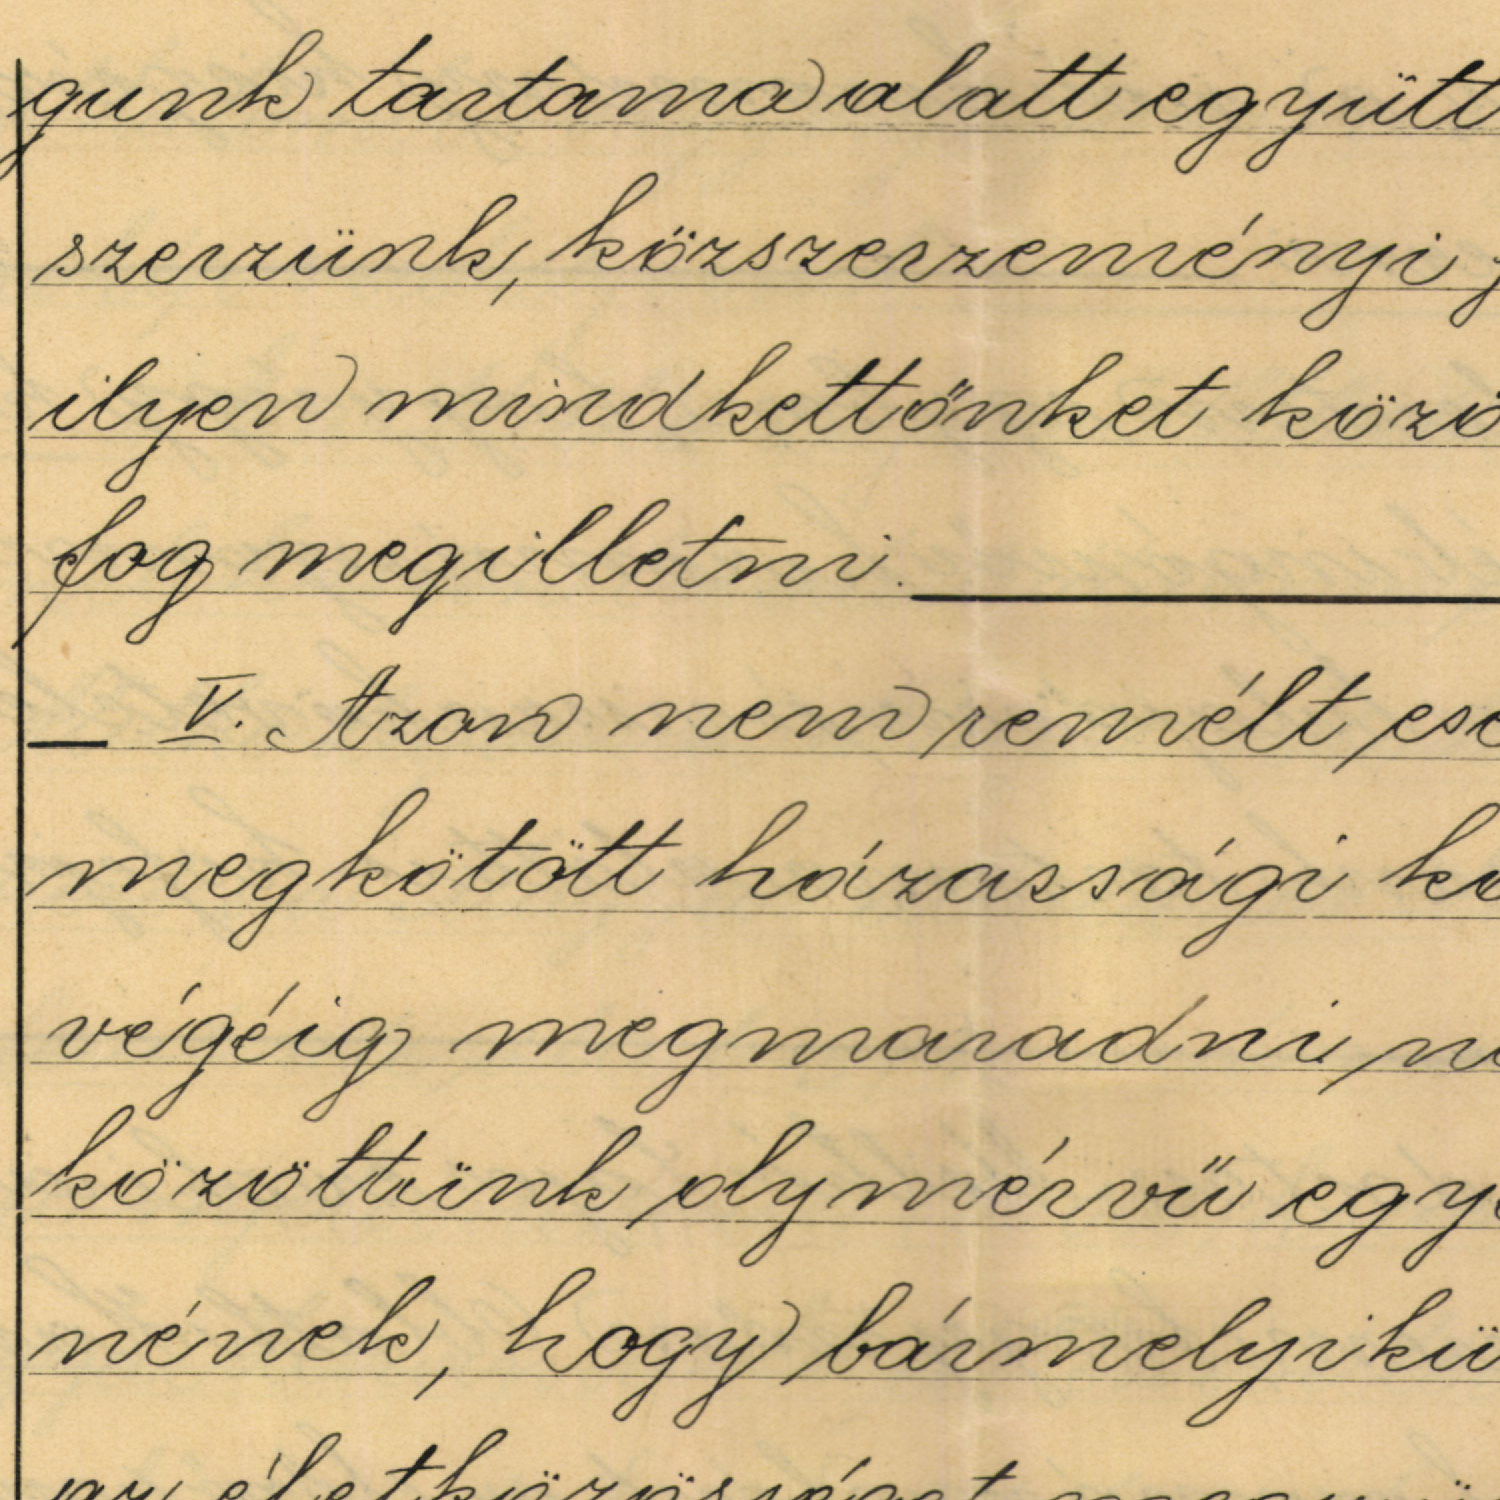 gunk tartama alatt együtt
szerzünk, közszerzeményi
ilyen mindkettőnket közö
fog megilletni.
V. Azon nem remélt ese
megkötött házassági kö
végéig megmaradni ne
közöttünk olymérvű egye
nének, hogy bármelyikü
az életközösséget